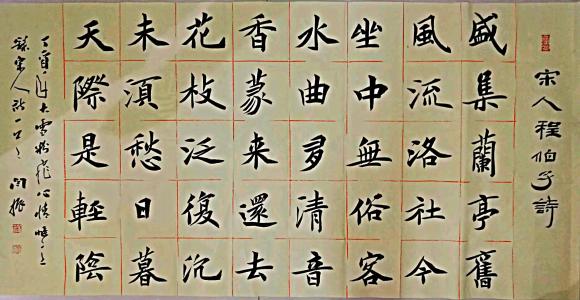 宋人程伯子詩
盛集蘭亭舊
風流洛社今
坐中無俗客
水曲多清音
香篆来還去
花枝泛復沉
未須愁日暮
天際是輕陰
丁酉年大雪
錄宋人詩一首